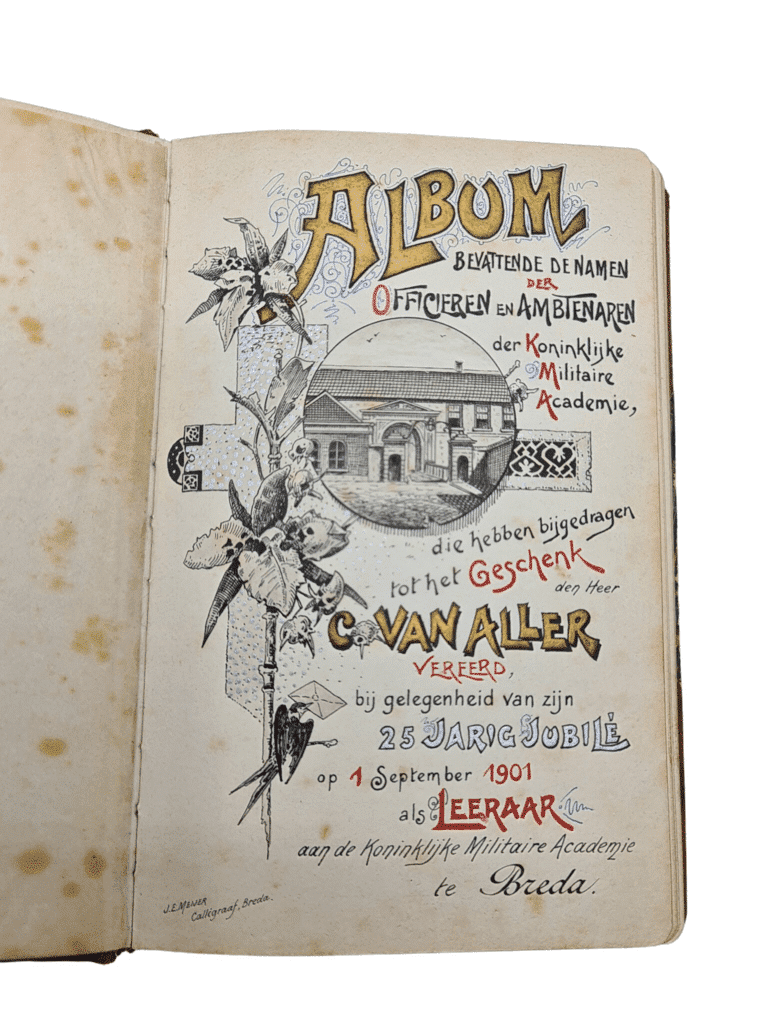 ALBUM
BEVATTENDE DE NAMEN
DER
OFFICIEREN EN AMBTENAREN
der Koninklijke
Militaire
Academie,
die hebben bijgedragen
tot het Geschenk
den Heer
C. VAN ALLER
VEREERD,
bij gelegenheid van zijn
25 JARIG JUBILÉ
op 1 September 1901
als LEERAAR
aan de Koninklijke Militaire Academie
te Breda.
J.E. MEIJER
Calligraaf, Breda.